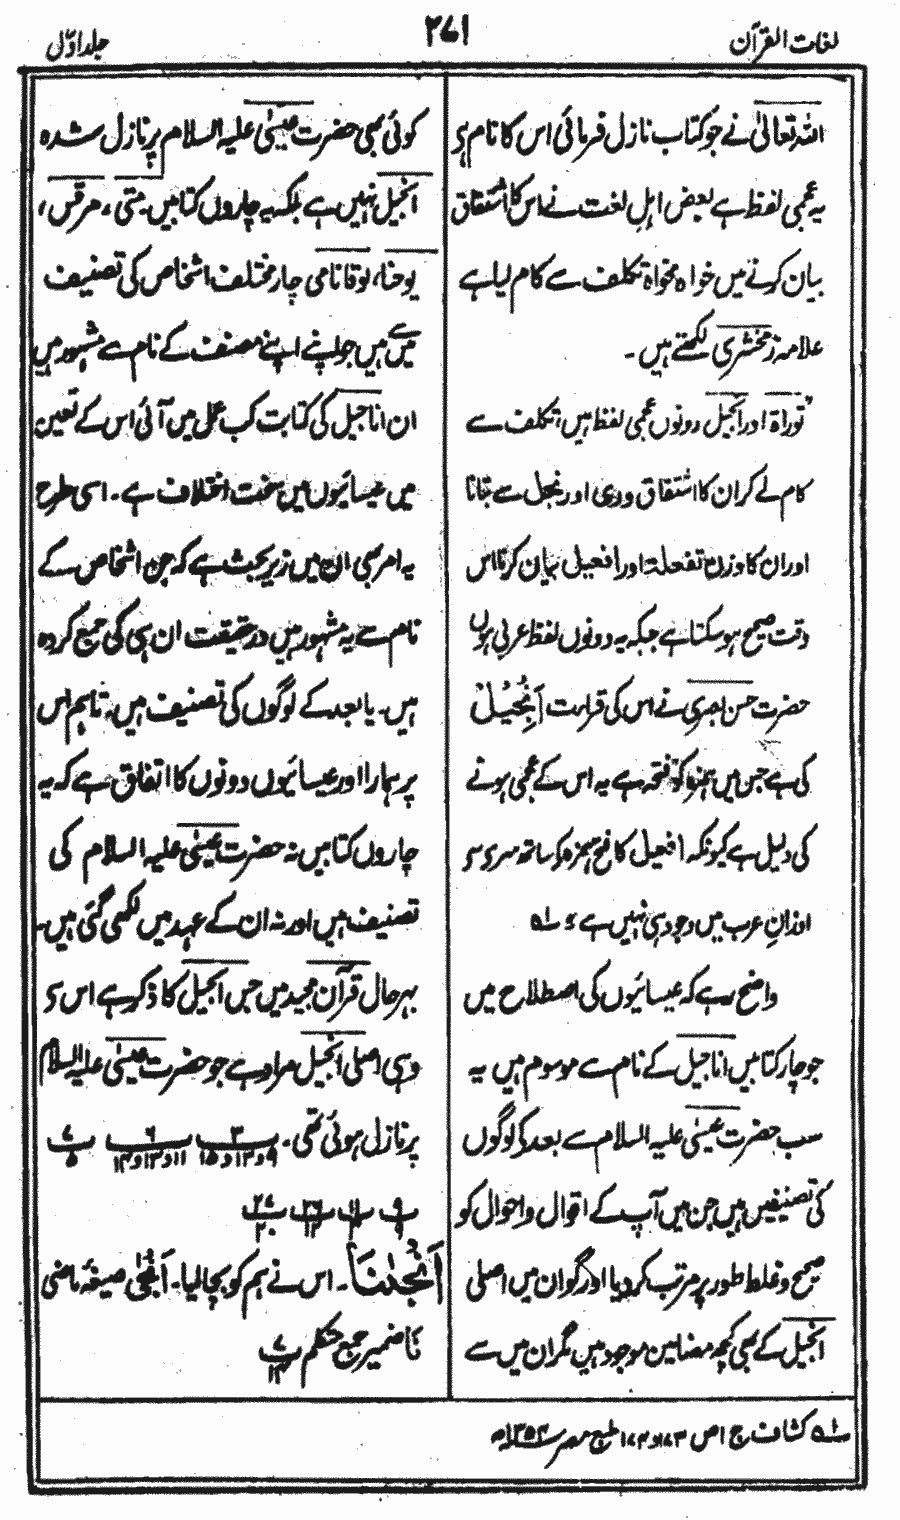 لغات القرآن
۲۷۱
جلد اوّل
اللہ تعالیٰ نے جو کتاب نازل فرمائی اس کا نام ہے
یہ عجمی لفظ ہے بعض اہلِ لغت نے اس کا اشتقاق
بیان کرنے میں خواہ مخواہ تکلف سے کام لیا ہے
علامہ زمخشری لکھتے ہیں ۔
"توراۃ اور انجیل دونوں عجمی لفظ ہیں، تکلف سے
کام لے کر ان کا اشتقاق وری اور نجل سے بتانا
اور ان کا وزن تفعلۃ اور افعیل بیان کرنا اس
وقت صحیح ہو سکتا ہے جبکہ یہ دونوں لفظ عربی ہوں
حضرت حسن بصری نے اس کی قرارت اَنْجِیْل
کی ہے جس میں ہمزہ کو فتحہ ہے یہ اس کے عجمی ہونے
کی دلیل ہے کیونکہ افعیل کا فتح ہمزہ کے ساتھ سرے سے
اوزانِ عرب میں وجود ہی نہیں ہے ؎ ۱
واضح رہے کہ عیسائیوں کی اصطلاح میں
جو چار کتابیں اناجیل کے نام سے موسوم ہیں یہ
سب حضرت عیسیٰ علیہ السلام سے بعد کے لوگوں
کی تصنیفیں ہیں جن میں آپ کے اقوال و احوال کو
صحیح و غلط طور پر مرتب کر دیا اور گو ان میں اصلی
انجیل کے بھی کچھ مضامین موجود ہیں مگر ان میں سے
کوئی بھی حضرت عیسیٰ علیہ السلام پر نازل شدہ
انجیل نہیں ہے بلکہ یہ چاروں کتابیں۔ متی، مرقس،
یوحنا، لوقا نامی چار مختلف اشخاص کی تصنیف
ہیں جو اپنے اپنے مصنف کے نام سے مشہور ہیں
ان اناجیل کی کتابت کب عمل میں آئی اس کے تعین
میں عیسائیوں میں سخت اختلاف ہے۔ اسی طرح
یہ امر بھی ان میں زیر بحث ہے کہ جن اشخاص کے
نام سے یہ مشہور ہیں در حقیقت ان ہی کی جمع کردہ
ہیں۔ یا بعد کے لوگوں کی تصنیف ہیں۔ تاہم اس
پر ہمارا اور عیسائیوں دونوں کا اتفاق ہے کہ یہ
چاروں کتابیں نہ حضرت عیسیٰ علیہ السلام کی
تصنیف ہیں اور نہ ان کے عہد میں لکھی گئی ہیں۔
بہر حال قرآن مجید میں جس انجیل کا ذکر ہے اس سے
وہی اصلی انجیل مراد ہے جو حضرت عیسیٰ علیہ السلام
پر نازل ہوئی تھی۔ ۳ ۹ و ۱۳ و ۱۵ ۶ ۱۱ و ۱۳ و ۱۴ ۷ ۵
۹ ۹ ۱۱ ۳ ۲۶ ۱۲ ۲۷ ۲۰
اَنْجٰنَا۔ اس نے ہم کو بچا لیا۔ اَنْجٰی صیغہ ماضی
نَا ضمیر جمع متکلم ۷ ۱۴
؎ ۱ کشاف ج ۱ ص ۱۷۳ و ۱۷۴ طبع مصر ۱۳۵۴ھ